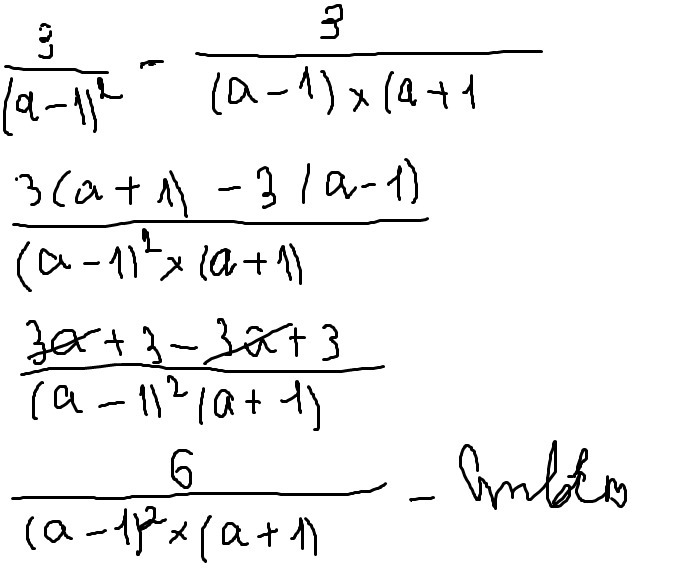 3/(a-1)² - 3/((a-1)×(a+1
(3(a+1) - 3(a-1))/((a-1)²×(a+1))
(3a+3-3a+3)/((a-1)²(a+1))
6/((a-1)²×(a+1)) -